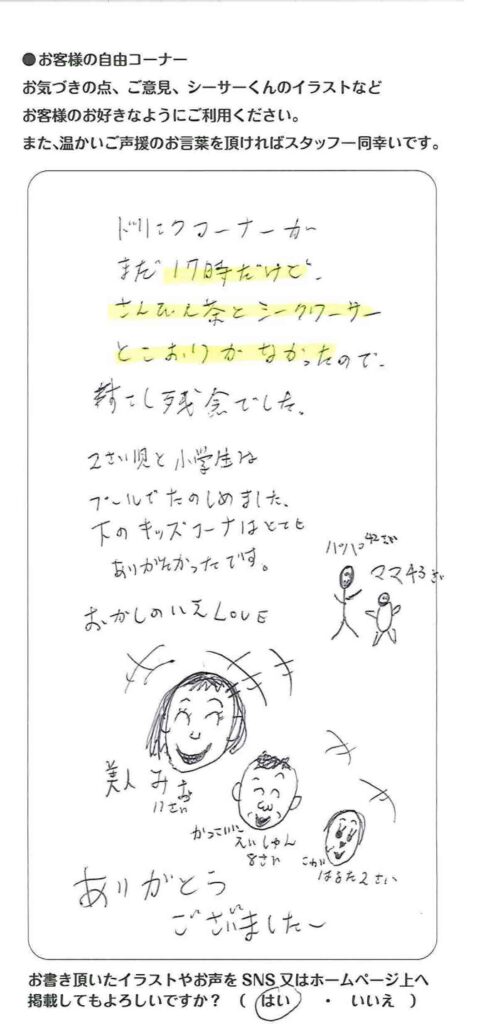 ●お客様の自由コーナー
お気づきの点、ご意見、シーサーくんのイラストなど
お客様のお好きなようにご利用ください。
また、温かいご声援のお言葉を頂ければスタッフ一同幸いです。
ドリンクコーナーが
まだ17時だけど、
さんぴん茶とシークワーサー
とこおりがなかったので、
少し残念でした。
2さい児と小学生は
プールでたのしめました、
下のキッズコーナはとても
ありがたかったです。
おかしのいえLOVE
パパ42さい
ママ43さい
美人 みお
11さい
かっこいい
えいしゅん
8さい
はるた2さい
ありがとう
ございました〜
お書き頂いたイラストやお声をSNS又はホームページ上へ
掲載してもよろしいですか? ( はい ・ いいえ )